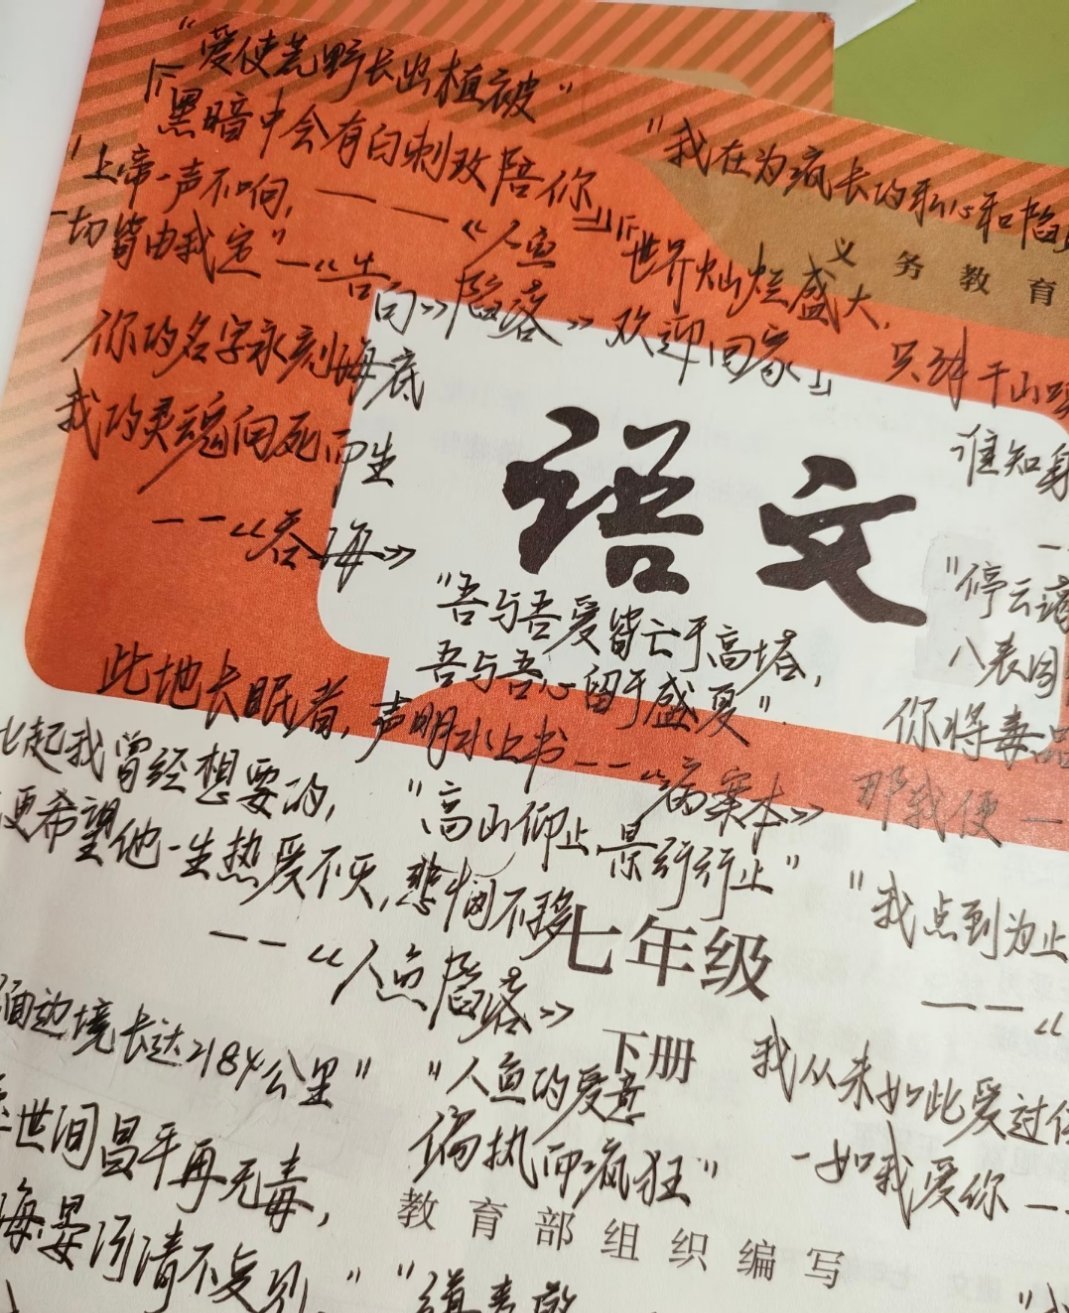 “爱使荒野长出植被”
『黑暗中会有白刺玫陪你
——《人鱼陷落》』
“上帝一声不响,
一切皆由我定”
——《告白》
“我在为疯长的私心和陷
『世界灿烂盛大,
欢迎回家』
义务教育
你的名字永刻海底
我的灵魂向死而生
——《吞海》
只
千山
谁知身
语文
“吾与吾爱皆亡于高塔,
吾与吾心留于盛夏”
“停云霭
八表同
此地长眠者,声明水上书
——《病案本》
你将毒品
那我便——
比起我曾经想要的,
更希望他一生热爱不灭,悲悯不移
——《人鱼陷落》
“高山仰止,景行行止”
“我点到为止
——《
七年级
下册
缅边境长达2184公里”
“人鱼的爱意
偏执而疯狂”
我从未如此爱过你
一如我爱你——
世间昌平再无毒,
海晏河清不复见”
教育部组织编写
“我